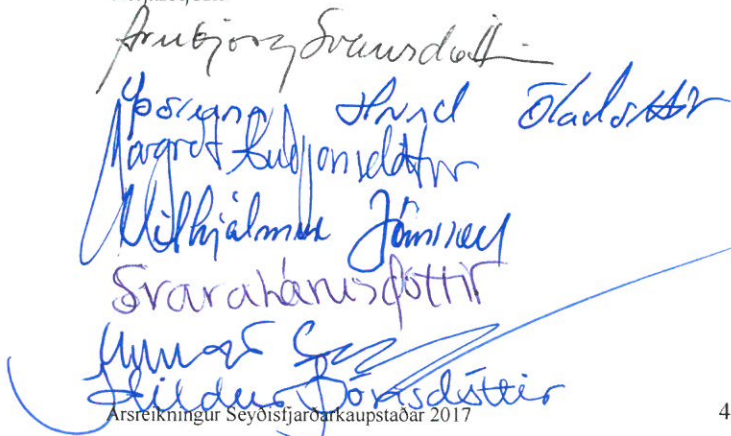 Arnbjörg Sveinsdóttir
Þórunn Hrund Óladóttir
Margrét Guðjónsdóttir
Vilhjálmur Jónsson
Svava Lárusdóttir
Hildur Þórisdóttir
Ársreikningur Seyðisfjarðarkaupstaðar 2017 4